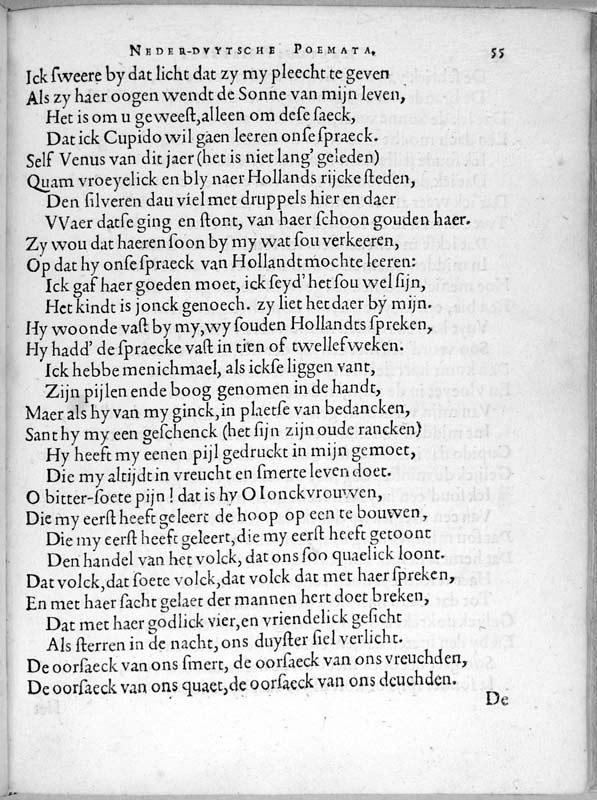 NEDER-DVYTSCHE POEMATA. 55
Ick ſweere by dat licht dat zy my pleecht te geven
Als zy haer oogen wendt de Sonne van mijn leven,
Het is om u geweeſt, alleen om deſe ſaeck,
Dat ick Cupido wil gaen leeren onſe ſpraeck.
Self Venus van dit jaer (het is niet lang' geleden)
Quam vroeyelick en bly naer Hollands rijcke ſteden,
Den ſilveren dau viel met druppels hier en daer
VVaer datſe ging en ſtont, van haer ſchoon gouden haer.
Zy wou dat haeren ſoon by my wat ſou verkeeren,
Op dat hy onſe ſpraeck van Hollandt mochte leeren:
Ick gaf haer goeden moet, ick ſeyd' het ſou wel ſijn,
Het kindt is jonck genoech. zy liet het daer by mijn.
Hy woonde vaſt by my, wy ſouden Hollandts ſpreken,
Hy hadd' de ſpraecke vaſt in tien of twellef weken.
Ick hebbe menichmael, als ickſe liggen vant,
Zijn pijlen ende boog genomen in de handt,
Maer als hy van my ginck, in plaetſe van bedancken,
Sant hy my een geſchenck (het ſijn zijn oude rancken)
Hy heeft my eenen pijl gedruckt in mijn gemoet,
Die my altijdt in vreucht en ſmerte leven doet.
O bitter-ſoete pijn! dat is hy O Ionckvrouwen,
Die my eerſt heeft geleert de hoop op een te bouwen,
Die my eerſt heeft geleert, die my eerſt heeft getoont
Den handel van het volck, dat ons ſoo quaelick loont.
Dat volck, dat ſoete volck, dat volck dat met haer ſpreken,
En met haer ſacht gelaet der mannen hert doet breken,
Dat met haer godlick vier, en vriendelick geſicht
Als ſterren in de nacht, ons duyſter ſiel verlicht.
De oorſaeck van ons ſmert, de oorſaeck van ons vreuchden,
De oorſaeck van ons quaet, de oorſaeck van ons deuchden.
De